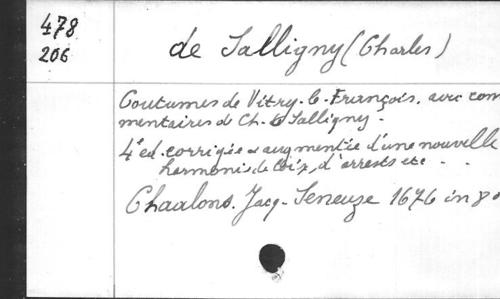 478
206
de Salligny (Charles)
Coutumes de Vitry-le-François, avec com
mentaires de Ch. de Salligny.
4e ed. corrigée et augmentée d'une nouvelle
harmonie de Loix, d'arrests etc.
Chaalons. Jacq. Seneuze 1676 in 8o